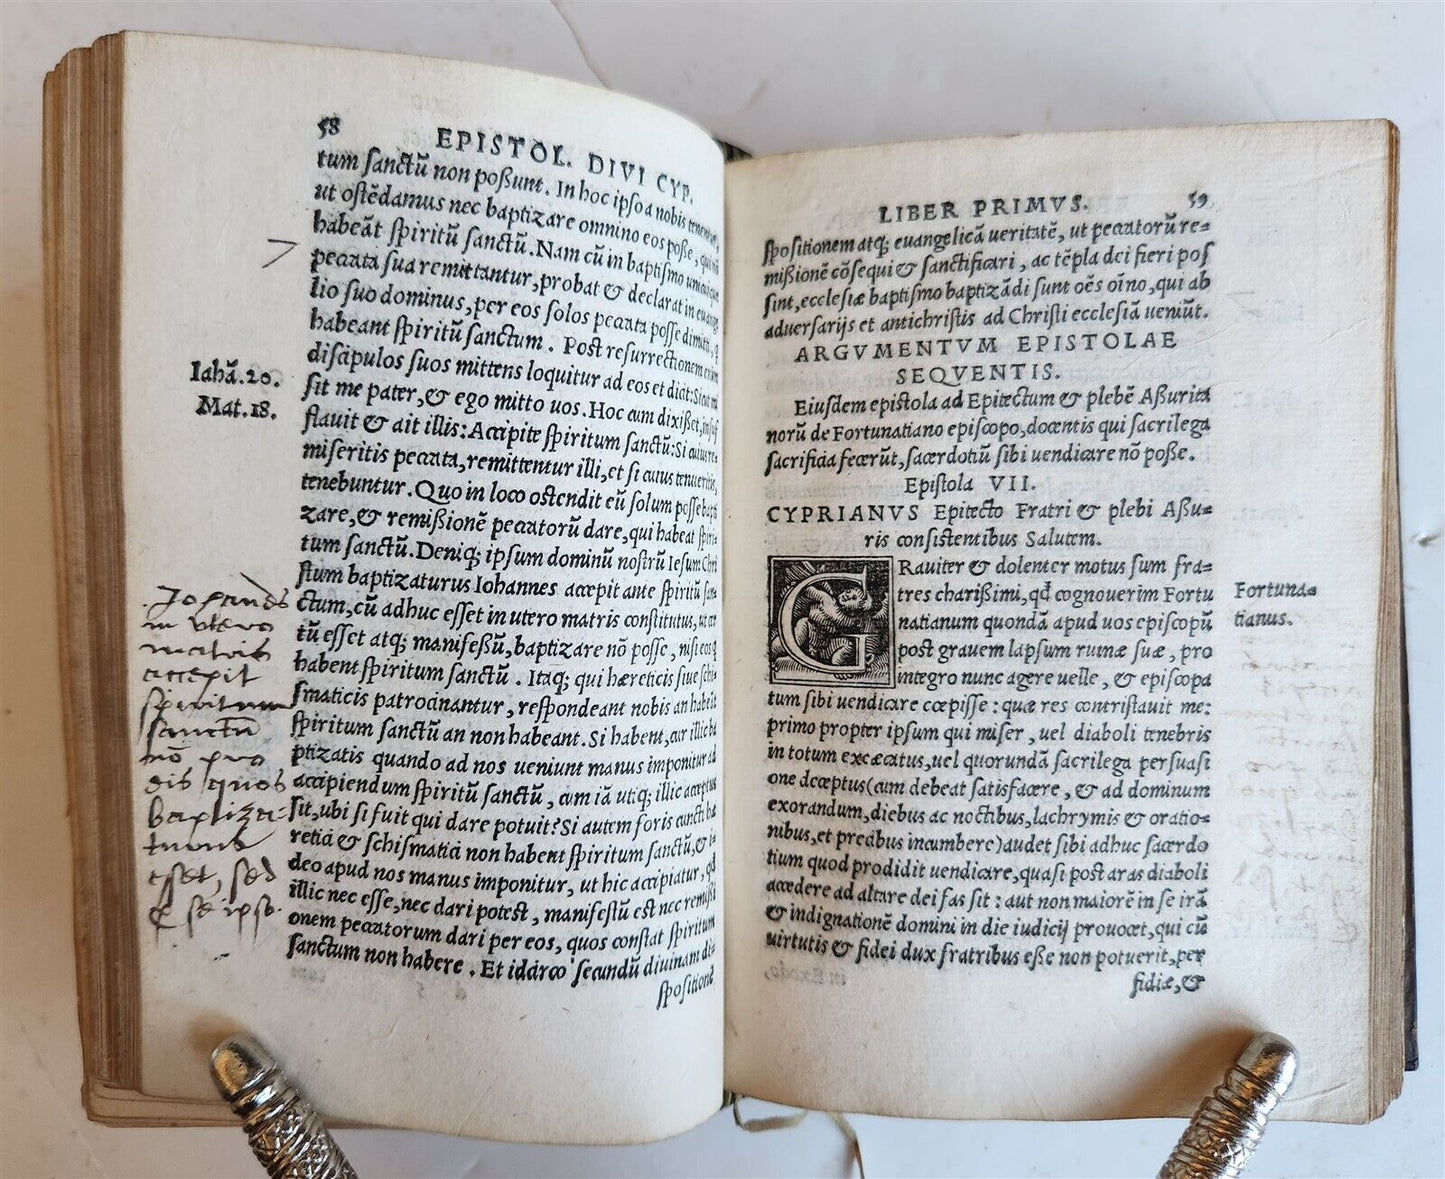 58
EPISTOL. DIVI CYP.
tum ſanctũ non poßunt. In hoc ipſo a nobis
ut oſtẽdamus nec baptizare omnino eos poße, qui
habeãt ſpiritũ ſanctũ. Nam cũ in baptiſmo unicuique
peccata ſua remittantur, probat & declarat in euange
lio ſuo dominus, per eos ſolos peccata poſſe dimitti, q
habeant ſpiritũ ſanctum. Poſt reſurrectionem enim
diſcipulos ſuos mittens loquitur ad eos et dicit: Sicut mi
ſit me pater, & ego mitto uos. Hoc cum dixißet, inſuf
flauit & ait illis: Accipite ſpiritum ſanctũ: Si cuius re-
miſeritis peccata, remittentur illi, et ſi cuius tenueritis,
tenebuntur. Quo in loco oſtendit eũ ſolum poſſe bapti
zare, & remißionẽ peccatorũ dare, qui habeat ſpiri-
tum ſanctũ. Deniq; ipſum dominũ noſtrũ Ieſum Chri
ſtum baptizaturus Iohannes accepit ante ſpiritũ ſan
ctum, cũ adhuc eſſet in utero matris conſtitutus, ut cer
tũ eſſet atq; manifeſtũ, baptizare nõ poſſe, niſi eos q
habent ſpiritum ſanctũ. Itaq; qui hæreticis ſiue ſchi-
ſmaticis patrocinantur, reſpondeant nobis an habeãt
ſpiritum ſanctũ an non habeant. Si habent, cur illic ba
ptizatis quando ad nos ueniunt manus imponitur ad
accipiendum ſpiritũ ſanctũ, cum iã utiq; illic acceptus
ſit, ubi ſi fuit qui dare potuit? Si autem foris cuncti hæ
retici & ſchiſmatici non habent ſpiritum ſanctũ, & id
deo apud nos manus imponitur, ut hic accipiatur, qđ
illic nec eſſe, nec dari poteſt, manifeſtũ eſt nec remißi
onem peccatorum dari per eos, quos conſtat ſpiritum
ſanctum non habere. Et idcirco ſecundũ diuinam di-
ſpoſitionẽ
Iahã. 20.
Mat. 18.
Joannes
in utero
matris
accepit
spiritum
sanctũ
nõ pro
dis quos
baptiza-
turus
esset, sed
& se ipso.
LIBER PRIMVS.
59
ſpoſitionem atq; euangelicã ueritatẽ, ut peccatorũ re-
mißionẽ cõſequi & ſanctificari, ac tẽpla dei fieri poſ
ſint, eccleſiæ baptiſmo baptizãdi ſunt oẽs oĩno, qui ab
aduerſarijs et antichriſtis ad Chriſti eccleſiã ueniũt.
ARGVMENTVM EPISTOLAE
SEQVENTIS.
Eiuſdem epiſtola ad Epitectum & plebẽ Aßurita
norũ de Fortunatiano epiſcopo, docentis qui ſacrilega
ſacrificia fecerũt, ſacerdotiũ ſibi uendicare nõ poſſe.
Epiſtola VII.
CYPRIANVS Epitecto Fratri & plebi Aßu-
ris conſiſtentibus Salutem.
GRauiter & dolenter motus ſum fra-
tres charißimi, qđ cognouerim Fortu
natianum quondã apud uos epiſcopũ
poſt grauem lapſum ruinæ ſuæ, pro
integro nunc agere uelle, & epiſcopa
tum ſibi uendicare cœpiſſe: quæ res contriſtauit me:
primo propter ipſum qui miſer, uel diaboli tenebris
in totum excæcatus, uel quorundã ſacrilega perſuaſi
one deceptus (cum debeat ſatisfacere, & ad dominum
exorandum, diebus ac noctibus, lachrymis & oratio-
nibus, et precibus incumbere) audet ſibi adhuc ſacerdo
tium quod prodidit uendicare, quaſi poſt aras diaboli
accedere ad altare dei fas ſit: aut non maiorẽ in ſe irã
& indignationẽ domini in die iudicij prouocet, qui cũ
uirtutis & fidei dux fratribus eße non potuerit, per
fidiæ, &
Fortuna-
tianus.